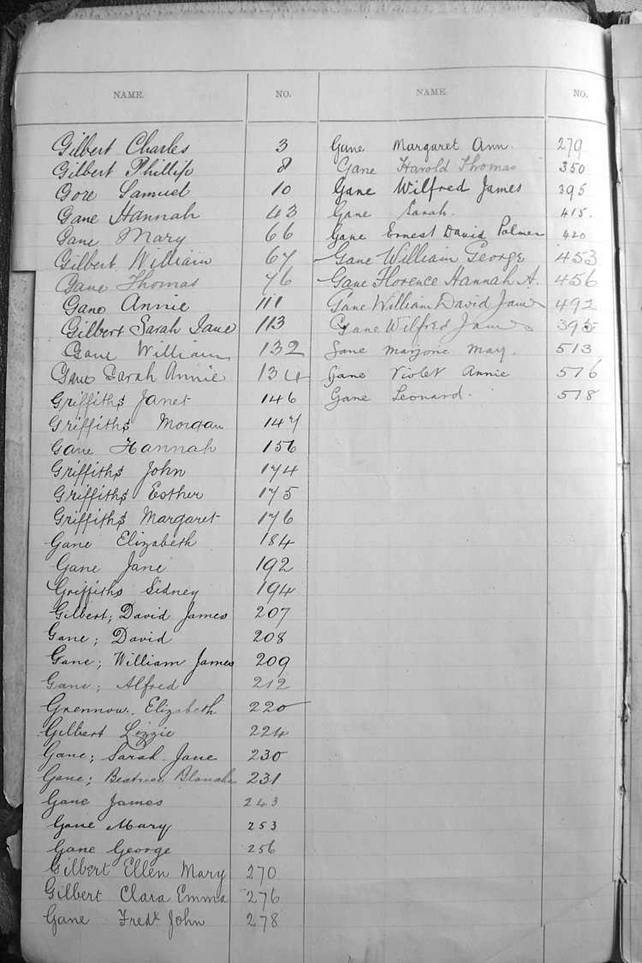 NAME. NO.
Gilbert Charles 3
Gilbert Phillip 8
Gore Samuel 10
Gane Hannah 43
Gane Mary 66
Gilbert William 67
Gane Thomas 76
Gane Annie 111
Gilbert Sarah Jane 113
Gane William 132
Gane Sarah Annie 134
Griffiths Janet 146
Griffiths Morgan 147
Gane Hannah 156
Griffiths John 174
Griffiths Esther 175
Griffiths Margaret 176
Gane Elizabeth 184
Gane Jane 192
Griffiths Sidney 194
Gilbert; David James 207
Gane; David 208
Gane; William James 209
Gane; Alfred 212
Grennow, Elizabeth 220
Gilbert Lizzie 224
Gane; Sarah Jane 230
Gane; Beatrice Blanche 231
Gane James 243
Gane Mary 253
Gane George 256
Gilbert Ellen Mary 270
Gilbert Clara Emma 276
Gane Fredk John 278
NAME. NO.
Gane Margaret Ann. 279
Gane Harold Thomas 350
Gane Wilfred James 395
Gane Sarah. 415.
Gane Ernest David Palmer 420
Gane William George 453
Gane Florence Hannah A. 456
Gane William David James 492
Gane Wilfred James 395
Gane Marjorie May. 513
Gane Violet Annie 576
Gane Leonard. 578